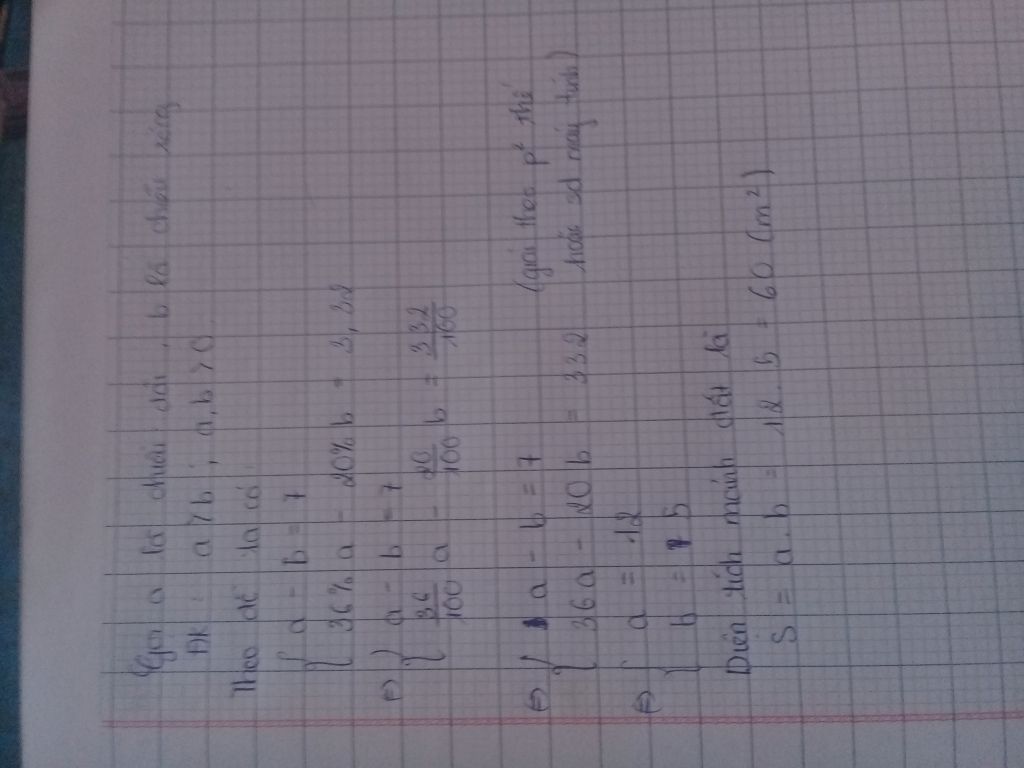 Gọi a là chiều dài, b là chiều rộng
ĐK: a > b; a, b > 0
Theo đề ta có:
{ a - b = 7
{ 36% a - 20% b = 3,32
⇔ { a - b = 7
{ 36/100 a - 20/100 b = 332/100
⇔ { a - b = 7 (giải theo p² thế
{ 36a - 20b = 332 hoặc sd máy tính)
⇔ { a = 12
{ b = 5
Diện tích mảnh đất là
S = a.b = 12.5 = 60 (m²)